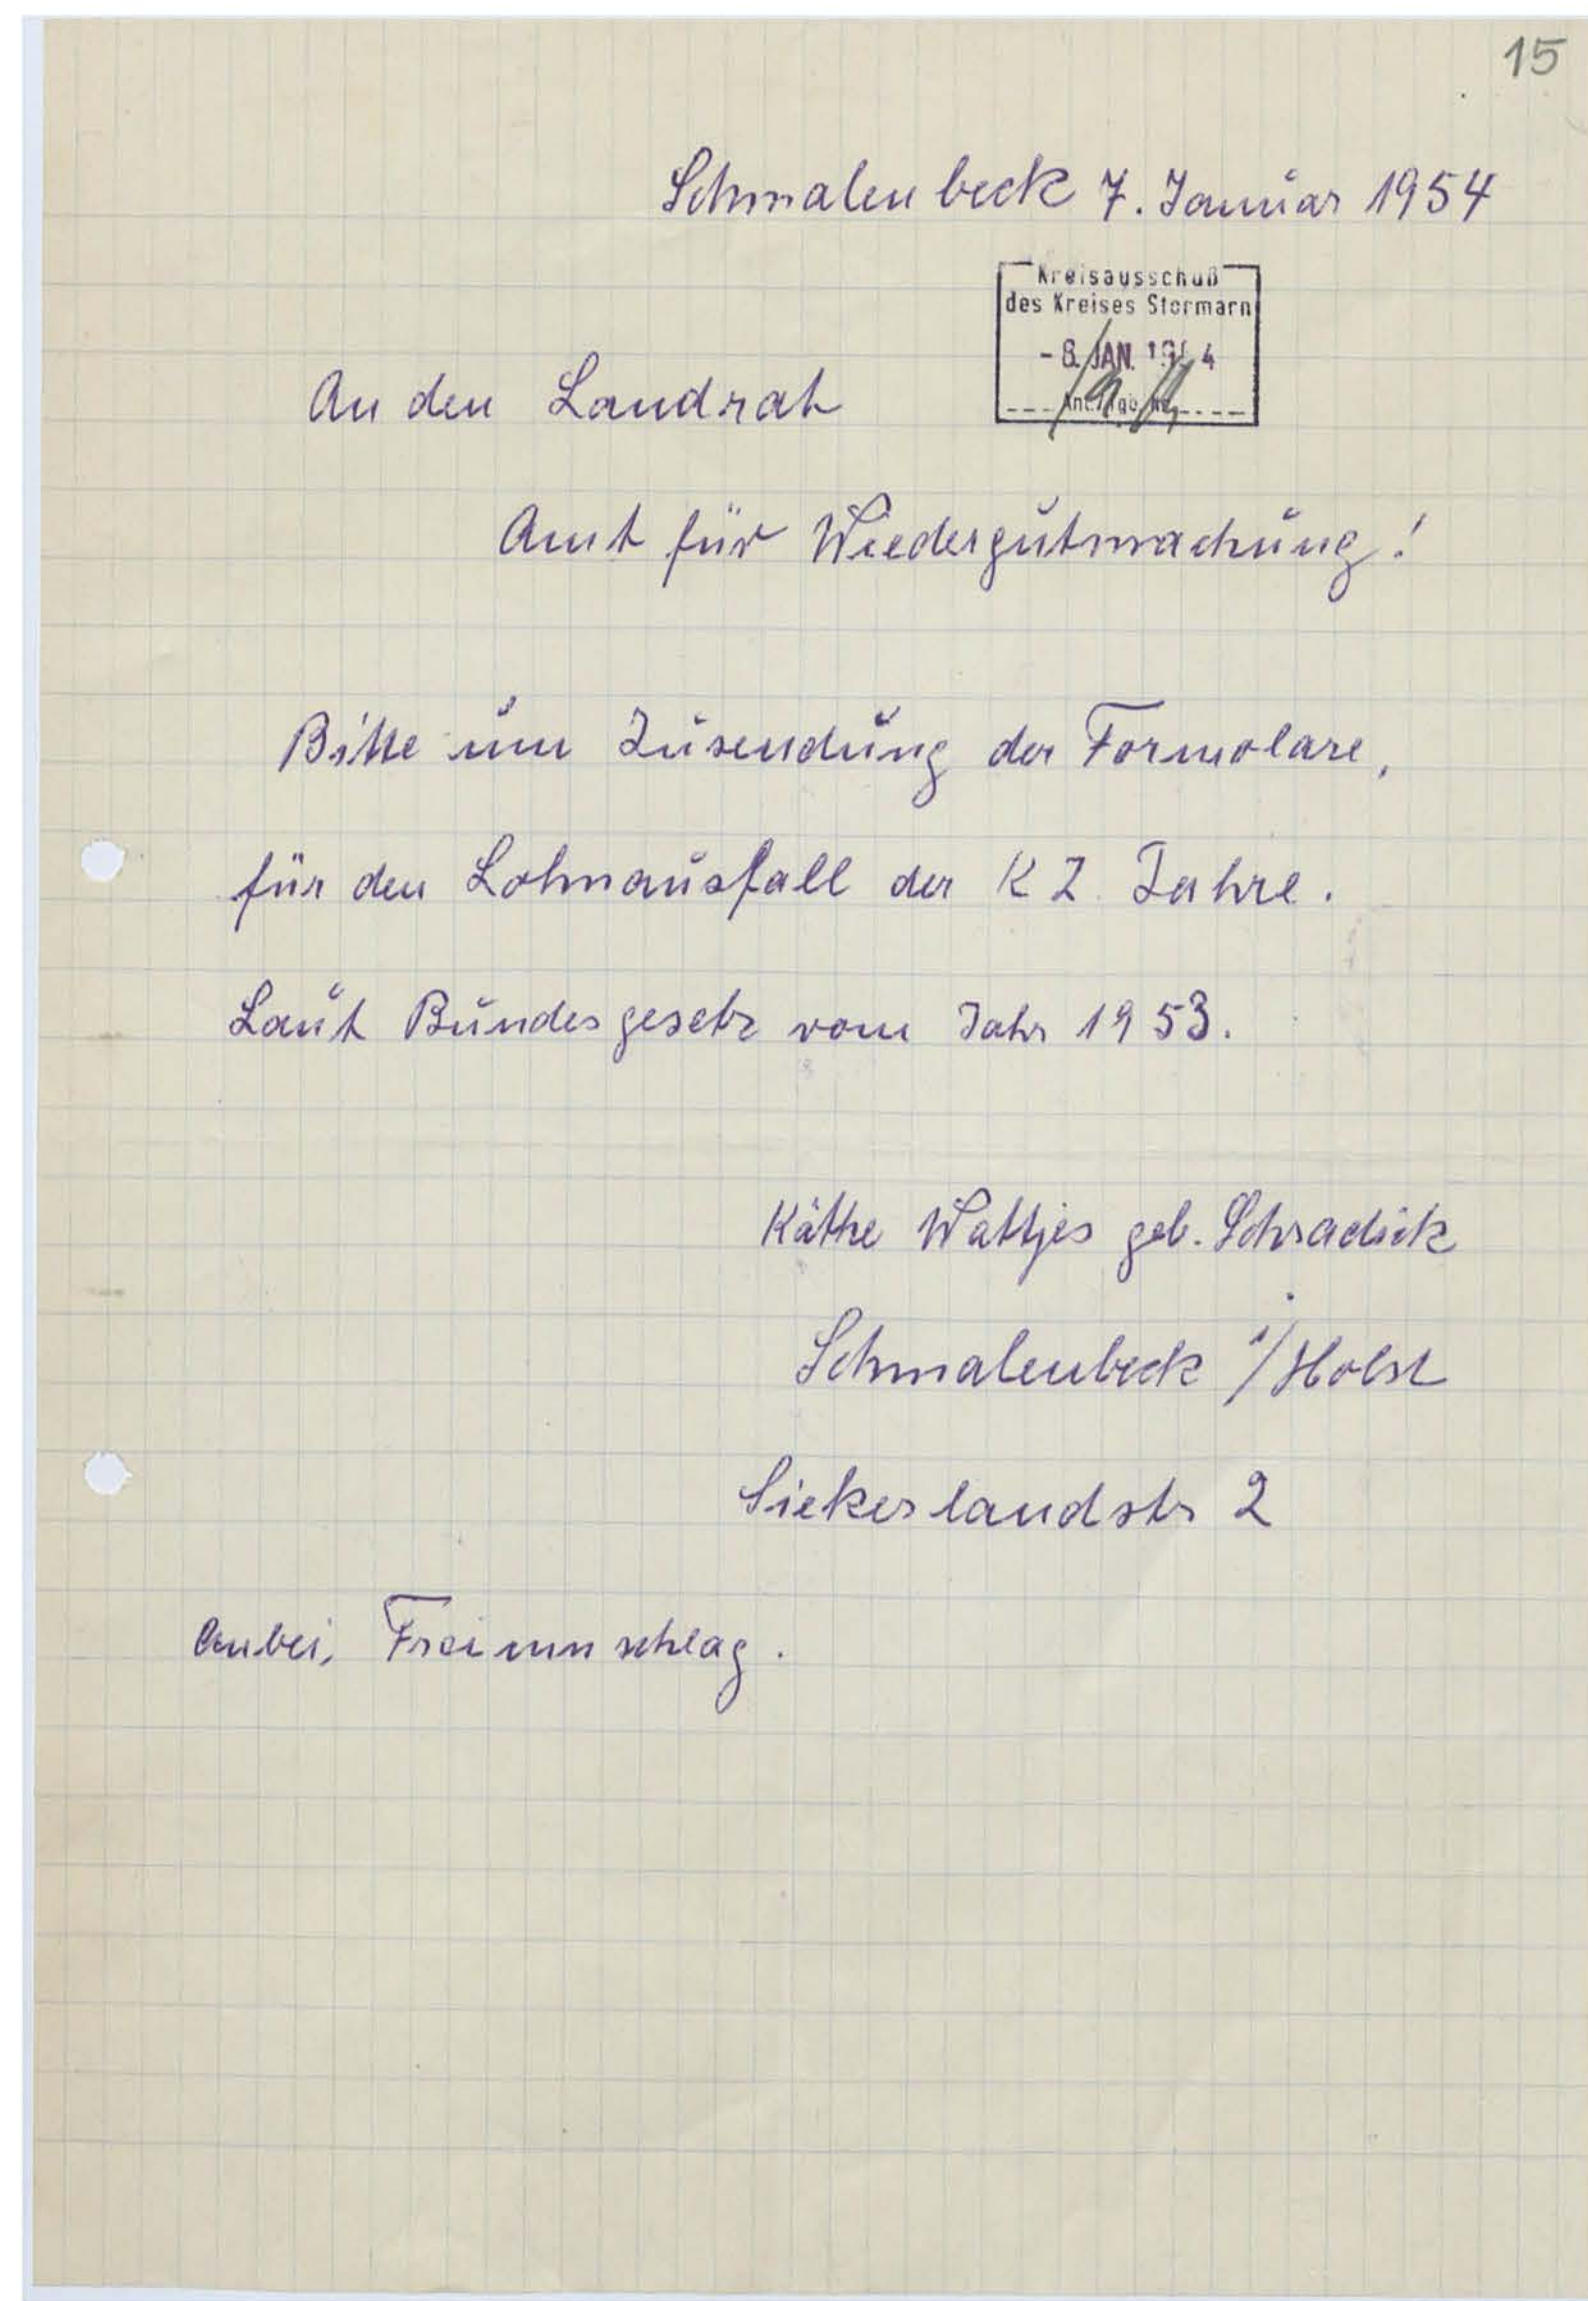 15
Schmalenbeck 7. Januar 1954
Kreisausschuß
des Kreises Stormarn
- 8. JAN. 1954
An den Landrat
Amt für Wiedergutmachung!
Bitte um Zusendung der Formolare,
für den Lohnausfall der KZ. Jahre.
Laut Bundesgesetz vom Jahr 1953.
Käthe Wattjes geb. Schradick
Schmalenbeck i/Holst
Siekerlandstr 2
Anbei, Freiumschlag.